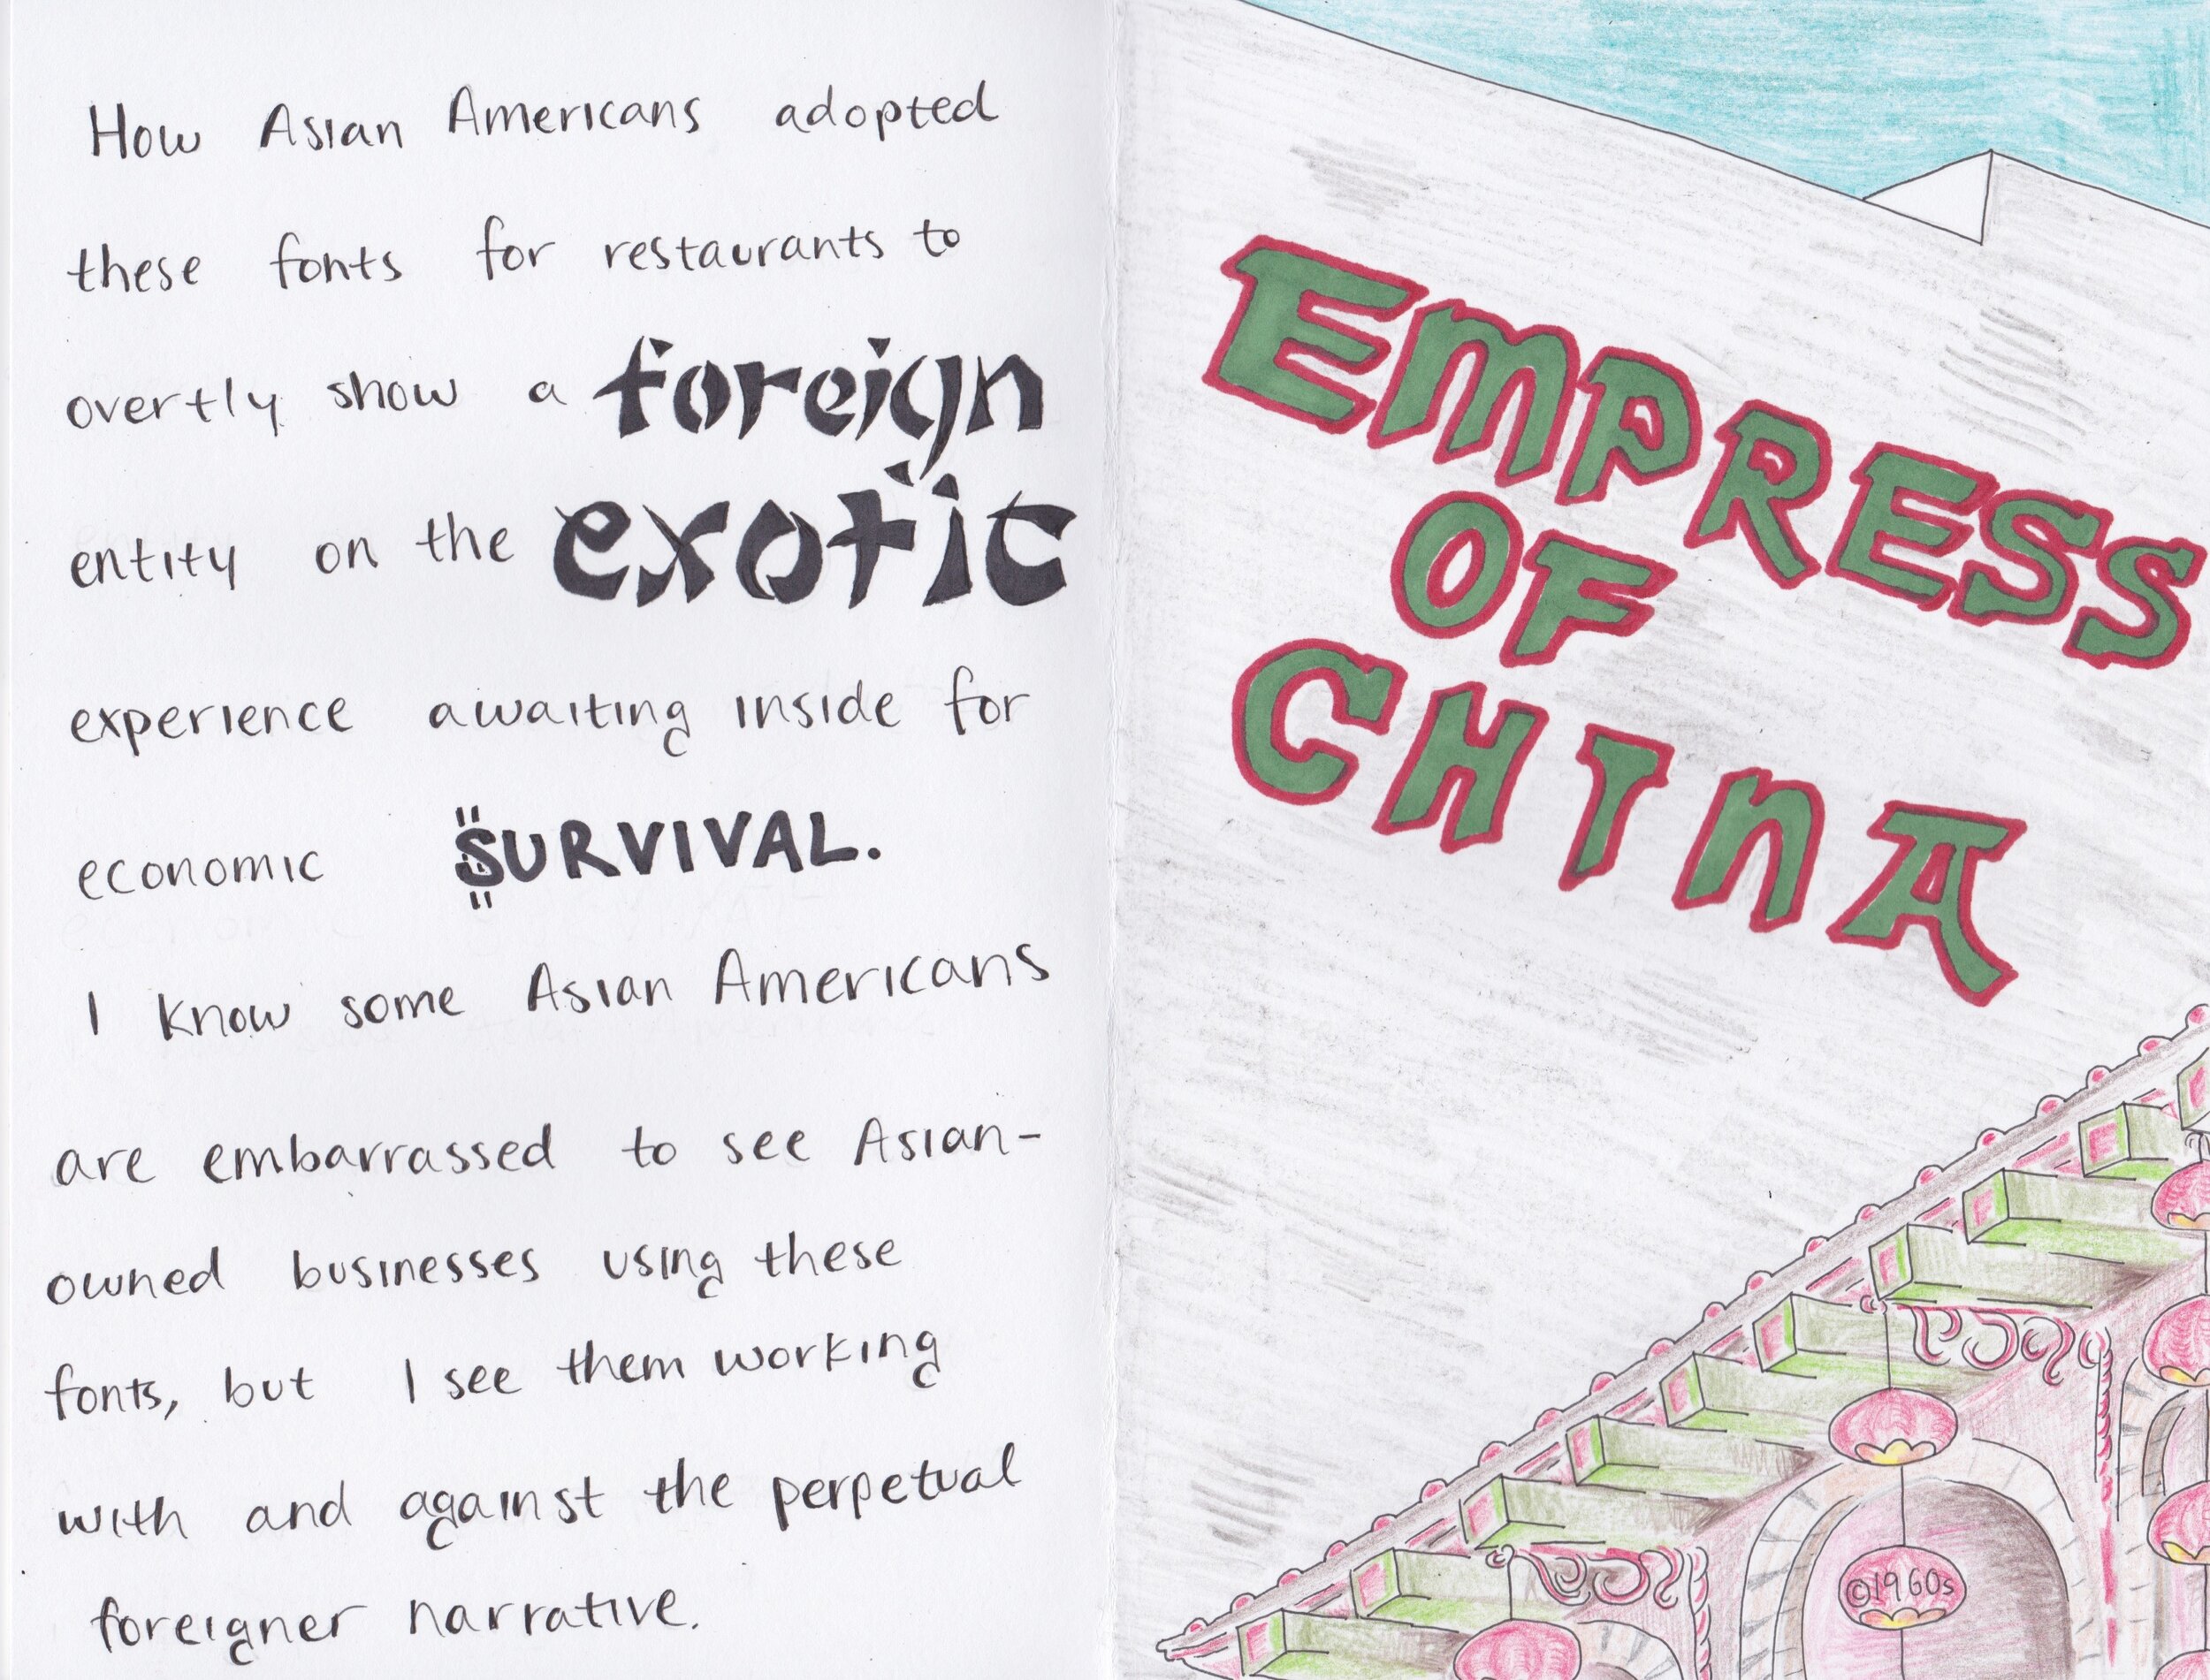 How Asian Americans adopted
these fonts for restaurants to
overtly show a foreign
entity on the exotic
experience awaiting inside for
economic $URVIVAL.
I know some Asian Americans
are embarrassed to see Asian-
owned businesses using these
fonts, but I see them working
with and against the perpetual
foreigner narrative.
EMPRESS
OF
CHINA
©1960s